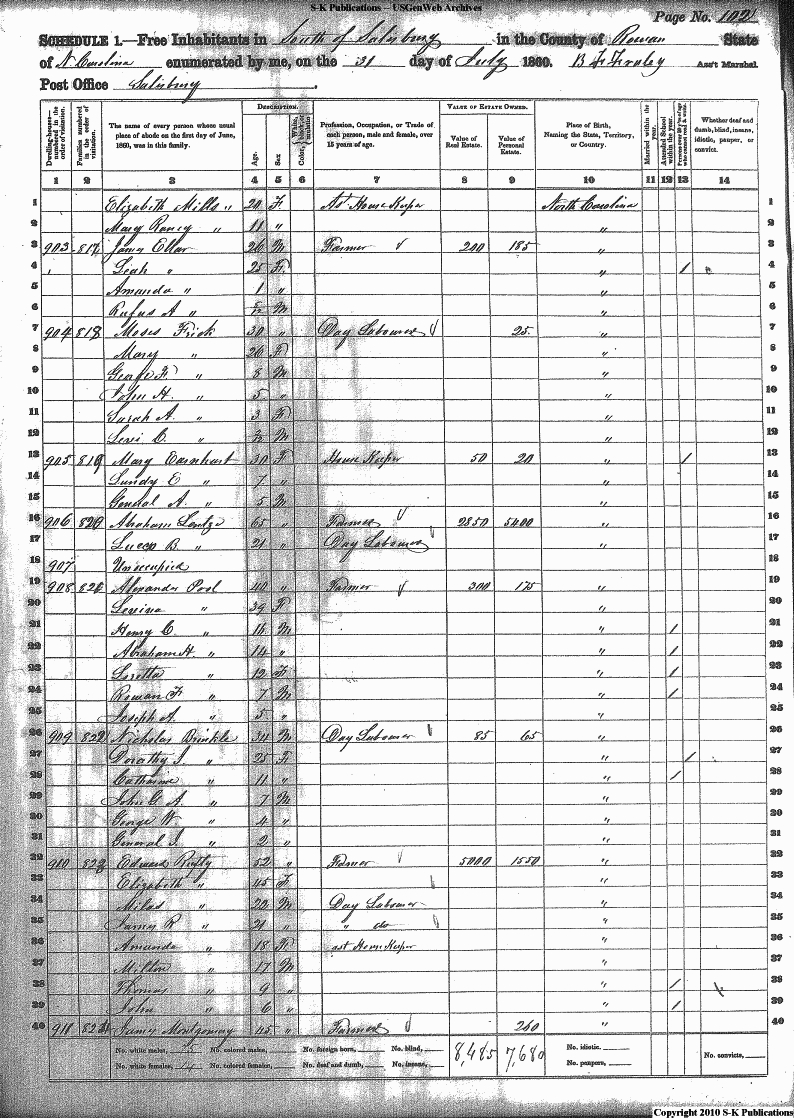 S-K Publications – USGenWeb Archives
Page No. 102
SCHEDULE 1.—Free Inhabitants in South of Salisbury in the County of Rowan State
of N. Carolina enumerated by me, on the 31 day of July 1860. B F Fraley Ass't Marshal.
Post Office Salisbury
Dwelling-houses— numbered in the order of visitation.
Families numbered in the order of visitation.
The name of every person whose usual place of abode on the first day of June, 1860, was in this family.
DESCRIPTION.
Age.
Sex
Color, White, black, or mulatto
Profession, Occupation, or Trade of each person, male and female, over 15 years of age.
VALUE OF ESTATE OWNED.
Value of Real Estate.
Value of Personal Estate.
Place of Birth, Naming the State, Territory, or Country.
Married within the year.
Attended School within the year.
Persons over 20 y'rs of age who cannot read & write.
Whether deaf and dumb, blind, insane, idiotic, pauper, or convict.
1 2 3 4 5 6 7 8 9 10 11 12 13 14
1 Elizabeth Mills " 20 F Ast House Keeper North Carolina 1
2 Mary Raney " 11 " " 2
3 903 817 James Ellar 26 M Farmer 200 185 " 3
4 Leah " 25 F " / 4
5 Amanda " 1 " " 5
6 Rufus A " M " 6
7 904 818 Moses Frick 30 " Day Labourer 25 " 7
8 Mary " 26 F " 8
9 George F. " 8 M " 9
10 John H. " 5 " " 10
11 Sarah A. " 3 F " 11
12 Levi C. " M " 12
13 905 819 Mary Earnhart 30 F House Keeper 50 20 " / 13
14 Lundy E " 7 " " 14
15 General A. " 5 M " 15
16 906 820 Abraham Lentz 65 " Farmer 2850 5400 " 16
17 B. " 21 " Day Labourer " 17
18 907 Unoccupied 18
19 908 821 Alexander Pool 40 " Farmer 300 175 " 19
20 Levina " 39 F " 20
21 Henry C. " 16 M " / 21
22 Abraham H. " 14 " " / 22
23 Loretta " 12 F " / 23
24 Rowan F " 7 M " / 24
25 Joseph A. " 5 " " 25
26 909 822 Nicholas Brinkle 34 M Day Labourer 85 65 " 26
27 Dorothy J. " 25 F " / 27
28 Catharine " 11 " " / 28
29 John G A. " 7 M " 29
30 George W. " 4 " " 30
31 General J. " 2 " " 31
32 910 823 Edward Rufty 52 " Farmer 5000 1550 " 32
33 Elizabeth " 45 F " 33
34 Milas " 22 M Day Labourer " 34
35 James R " 21 " " do " 35
36 Amanda " 18 F ast House Keeper " 36
37 Milton " 17 M " 37
38 Thomas " 9 " " / 38
39 John " 6 " " / 39
40 911 824 James Montgomery 45 " Farmer 260 " 40
No. white males, No. colored males, No. foreign born, No. blind, 8,485 7,680 No. idiotic, No. convicts,
No. white females, 14 No. colored females, No. deaf and dumb, No. insane, No. paupers,
Copyright 2010 S-K Publications